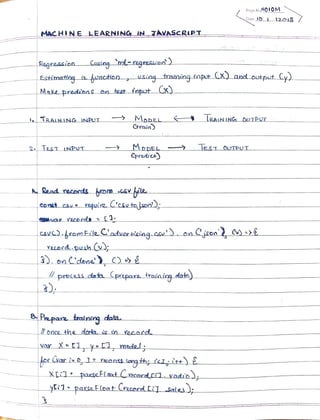 Date 10.1.2018
MACHINE LEARNING IN JAVASCRIPT
Regression (using 'ml-regression')
Estimating a function, using training input (X) and output (y)
Make predions on test input (X)
1. TRAINING INPUT → MODEL ← TRAINING OUTPUT
(train)
2. TEST INPUT → MODEL → TEST OUTPUT
(predict)
A. Read records from .csv file
const csv = require ('csvtojson');
var records = [];
csv().fromFile('advertising.csv').on('json', (v) => {
record.push(v);
}).on('done', () => {
// process data (prepare training data)
});
B. Prepare training data
// once the data is in record
var X = [], y = [], model;
for (var i=0, l = record.length; i<l; i++) {
X[i] = parseFloat (record[i].radio);
y[i] = parseFloat (record[i].sales);
}